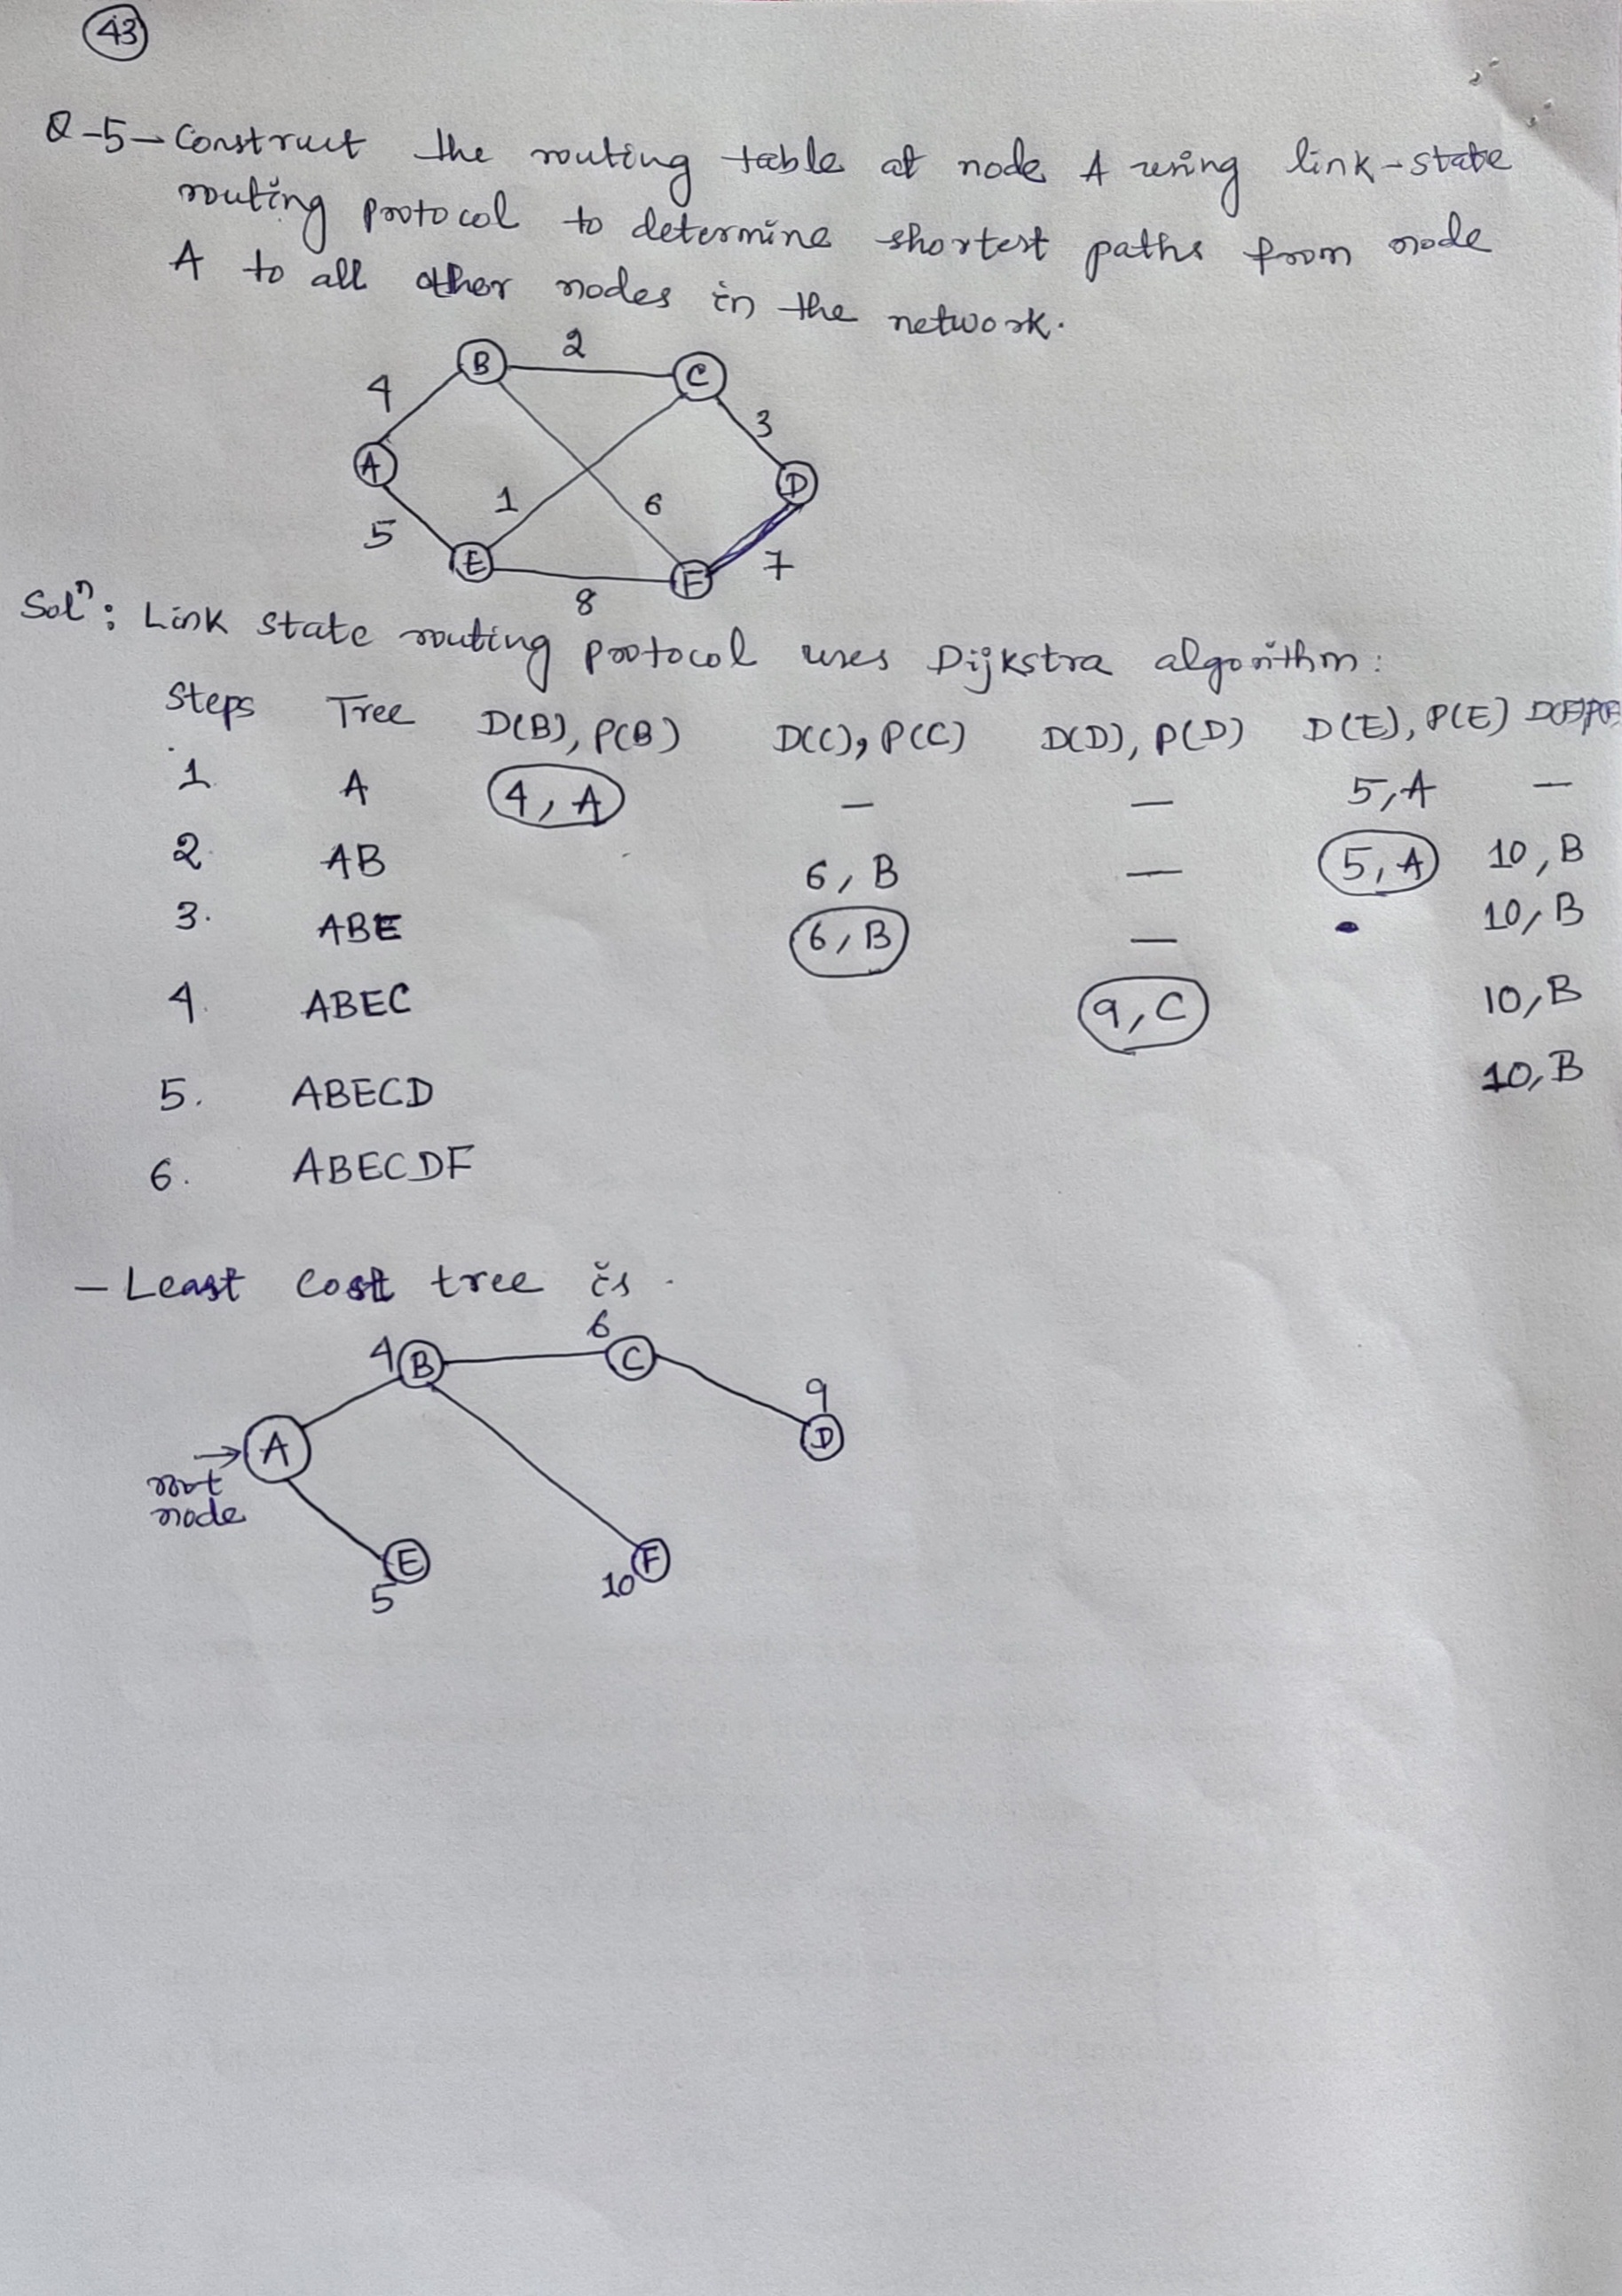 43
Q-5- Construct the routing table at node A using link-state
routing protocol to determine shortest paths from node
A to all other nodes in the network.
B 2 C
4 3
A D
1 6
5 7
E F
8
Solⁿ: Link state routing protocol uses Dijkstra algorithm:
Steps Tree D(B), P(B) D(C), P(C) D(D), P(D) D(E), P(E) D(F), P(F)
1 A 4, A — — 5, A —
2 AB 6, B — 5, A 10, B
3. ABE 6, B — 10, B
4. ABEC 9, C 10, B
5. ABECD 10, B
6. ABECDF
- Least cost tree is.
4 B 6 C
9
D
→ A
root
node
E F
5 10